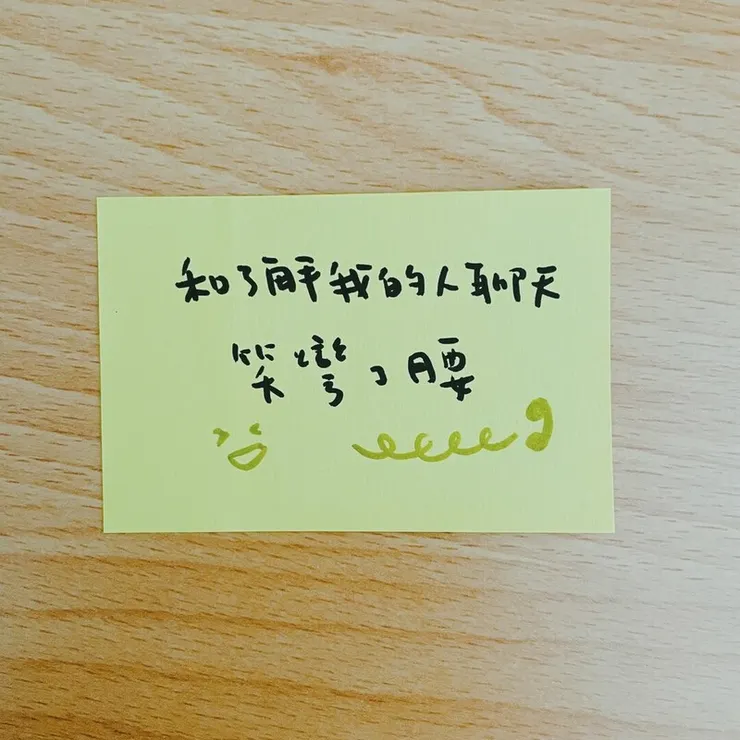 和了解我的人聊天
笑彎了腰